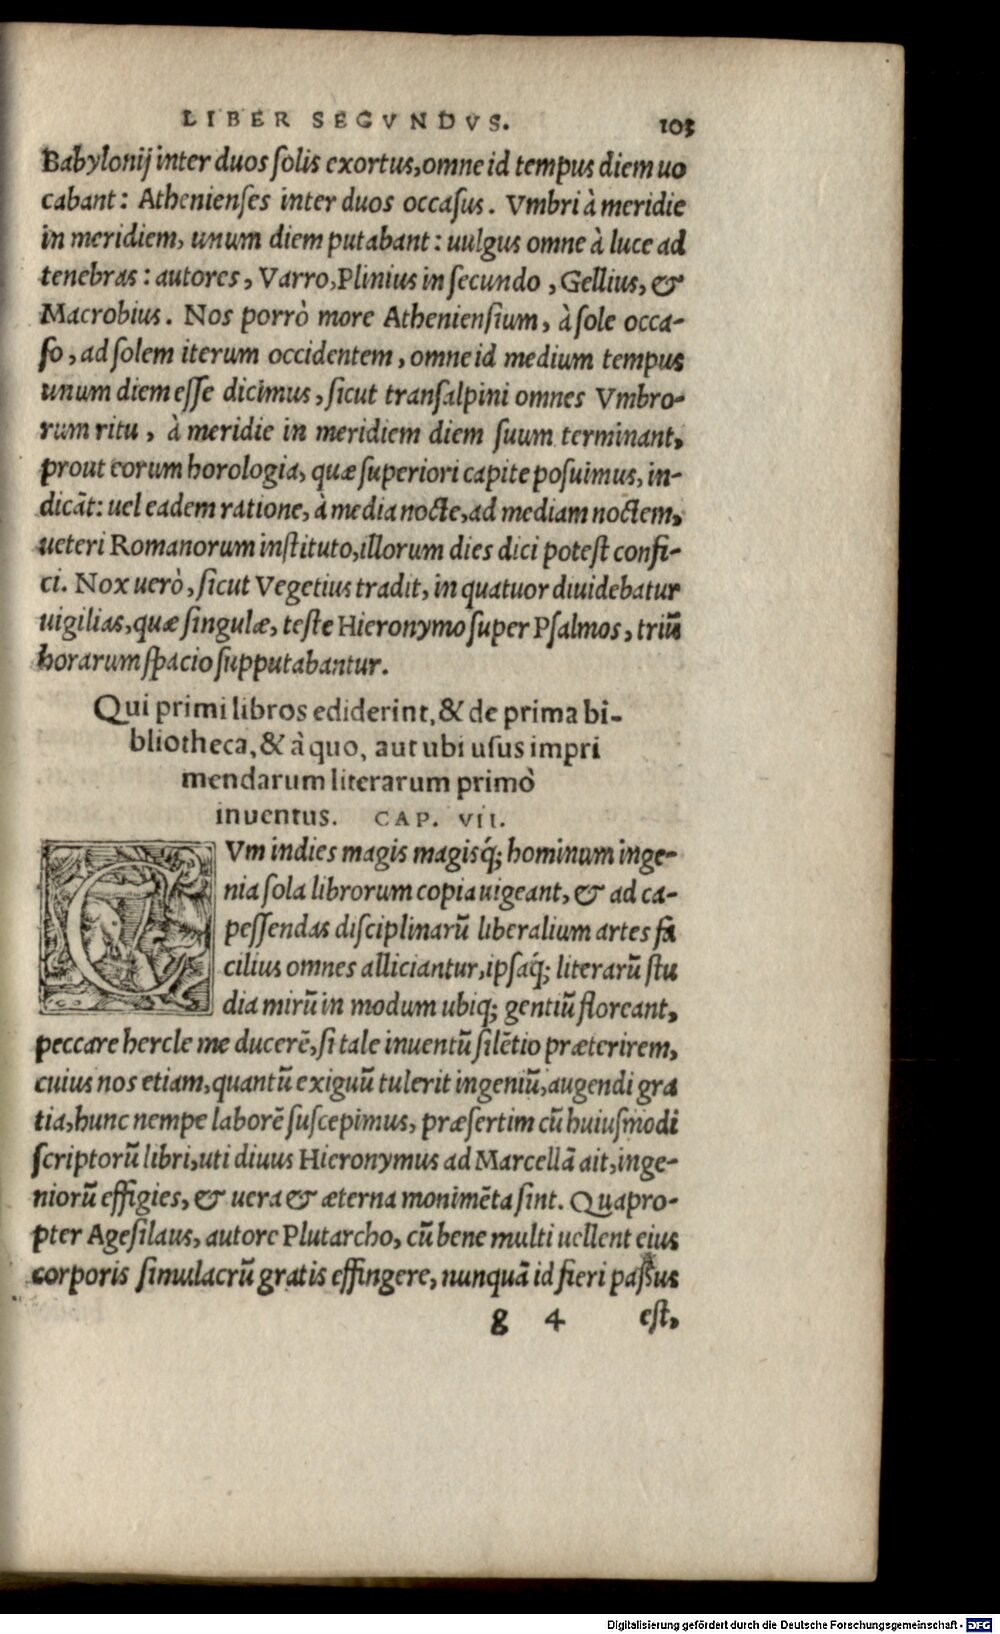 LIBER SECVNDVS. 103
Babylonij inter duos solis exortus, omne id tempus diem uo
cabant: Athenienses inter duos occasus. Vmbri à meridie
in meridiem, unum diem putabant: uulgus omne à luce ad
tenebras: autores, Varro, Plinius in secundo, Gellius, &
Macrobius. Nos porrò more Atheniensium, à sole occa-
so, ad solem iterum occidentem, omne id medium tempus
unum diem esse dicimus, sicut transalpini omnes Vmbro-
rum ritu, à meridie in meridiem diem suum terminant,
prout eorum horologia, quæ superiori capite posuimus, in-
dicāt: uel eadem ratione, à media nocte, ad mediam noctem,
ueteri Romanorum instituto, illorum dies dici potest confi-
ci. Nox uerò, sicut Vegetius tradit, in quatuor diuidebatur
uigilias, quæ singulæ, teste Hieronymo super Psalmos, triū
horarum spacio supputabantur.
Qui primi libros ediderint, & de prima bi-
bliotheca, & à quo, aut ubi usus impri
mendarum literarum primò
inuentus. CAP. VII.
CVm indies magis magisq́; hominum inge-
nia sola librorum copia uigeant, & ad ca-
pessendas disciplinarū liberalium artes fa
cilius omnes alliciantur, ipsaq́; literarū stu
dia mirū in modum ubiq; gentiū floreant,
peccare hercle me ducerē, si tale inuentū silētio præterirem,
cuius nos etiam, quantū exiguū tulerit ingeniū, augendi gra
tia, hunc nempe laborē suscepimus, præsertim cū huiusmodi
scriptorū libri, uti diuus Hieronymus ad Marcellā ait, inge-
niorū effigies, & uera & æterna monimēta sint. Quapro-
pter Agesilaus, autore Plutarcho, cū bene multi uellent eius
corporis simulacrū gratis effingere, nunquā id fieri passus
g 4 est,
Digitalisierung gefördert durch die Deutsche Forschungsgemeinschaft - DFG